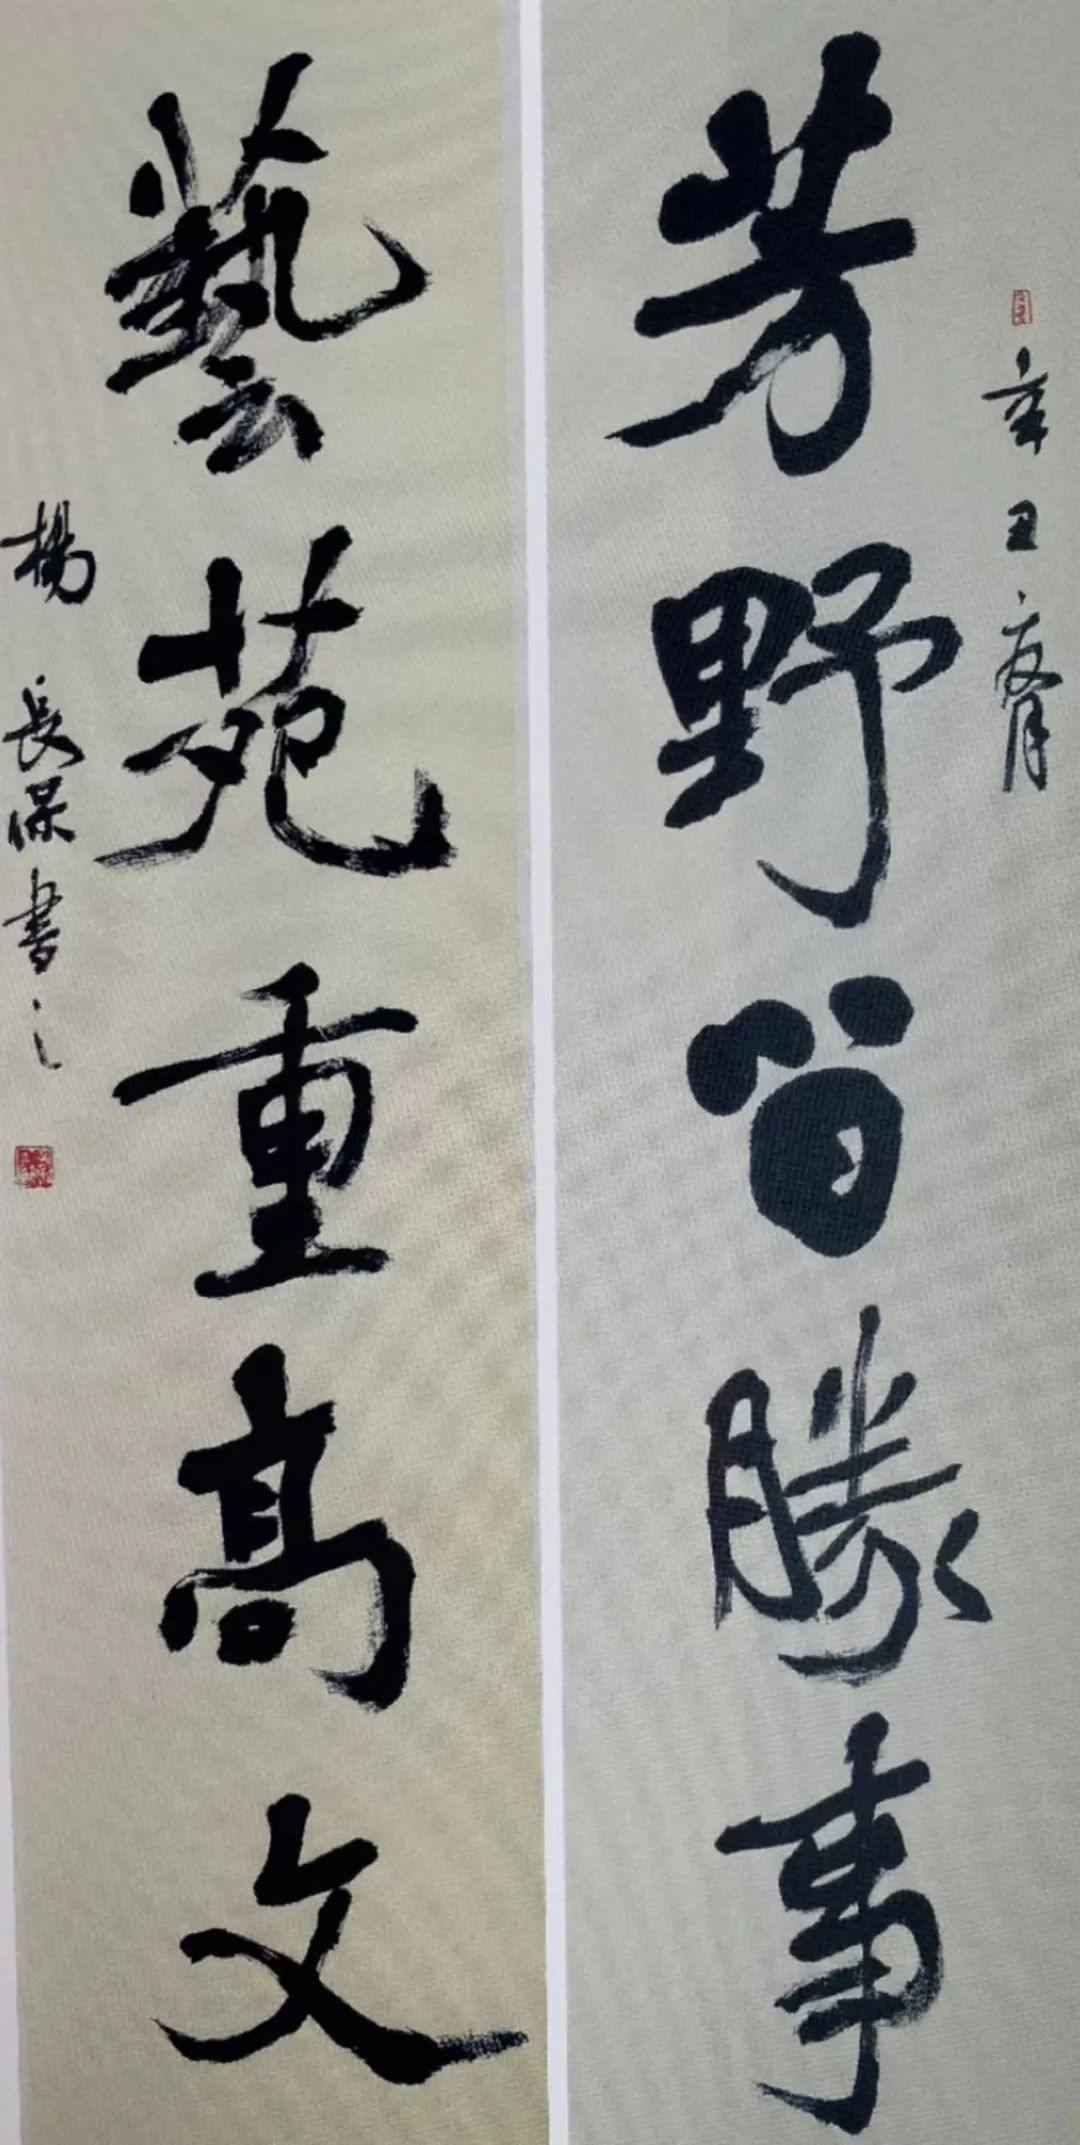 辛丑夏月
芳野皆勝事
藝苑重高文
楊長保書之